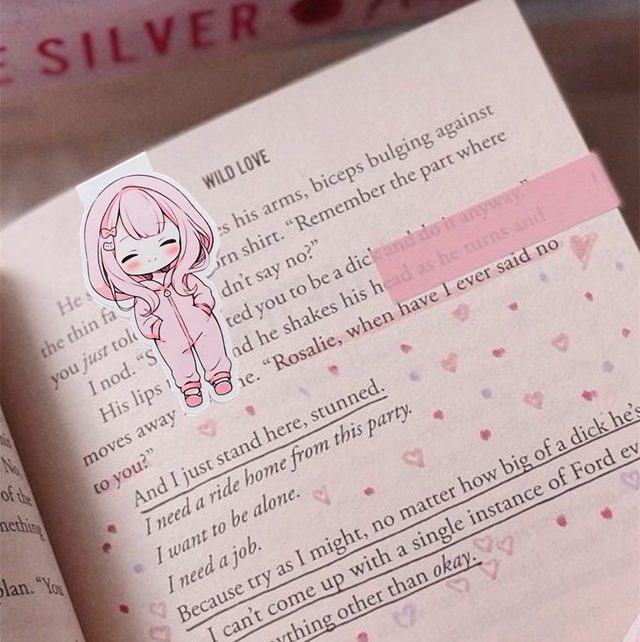 E SILVER
WILD LOVE
He s his arms, biceps bulging against
the thin fa rn shirt. “Remember the part where
you just tol dn’t say no?”
I nod. “S ted you to be a dick and do it anyway.”
His lips nd he shakes his head as he turns and
moves away me. “Rosalie, when have I ever said no
to you?”
And I just stand here, stunned.
I need a ride home from this party.
I want to be alone.
I need a job.
Because try as I might, no matter how big of a dick he’s
I can’t come up with a single instance of Ford ev
ything other than okay.
No,
of the
nething
plan. “You